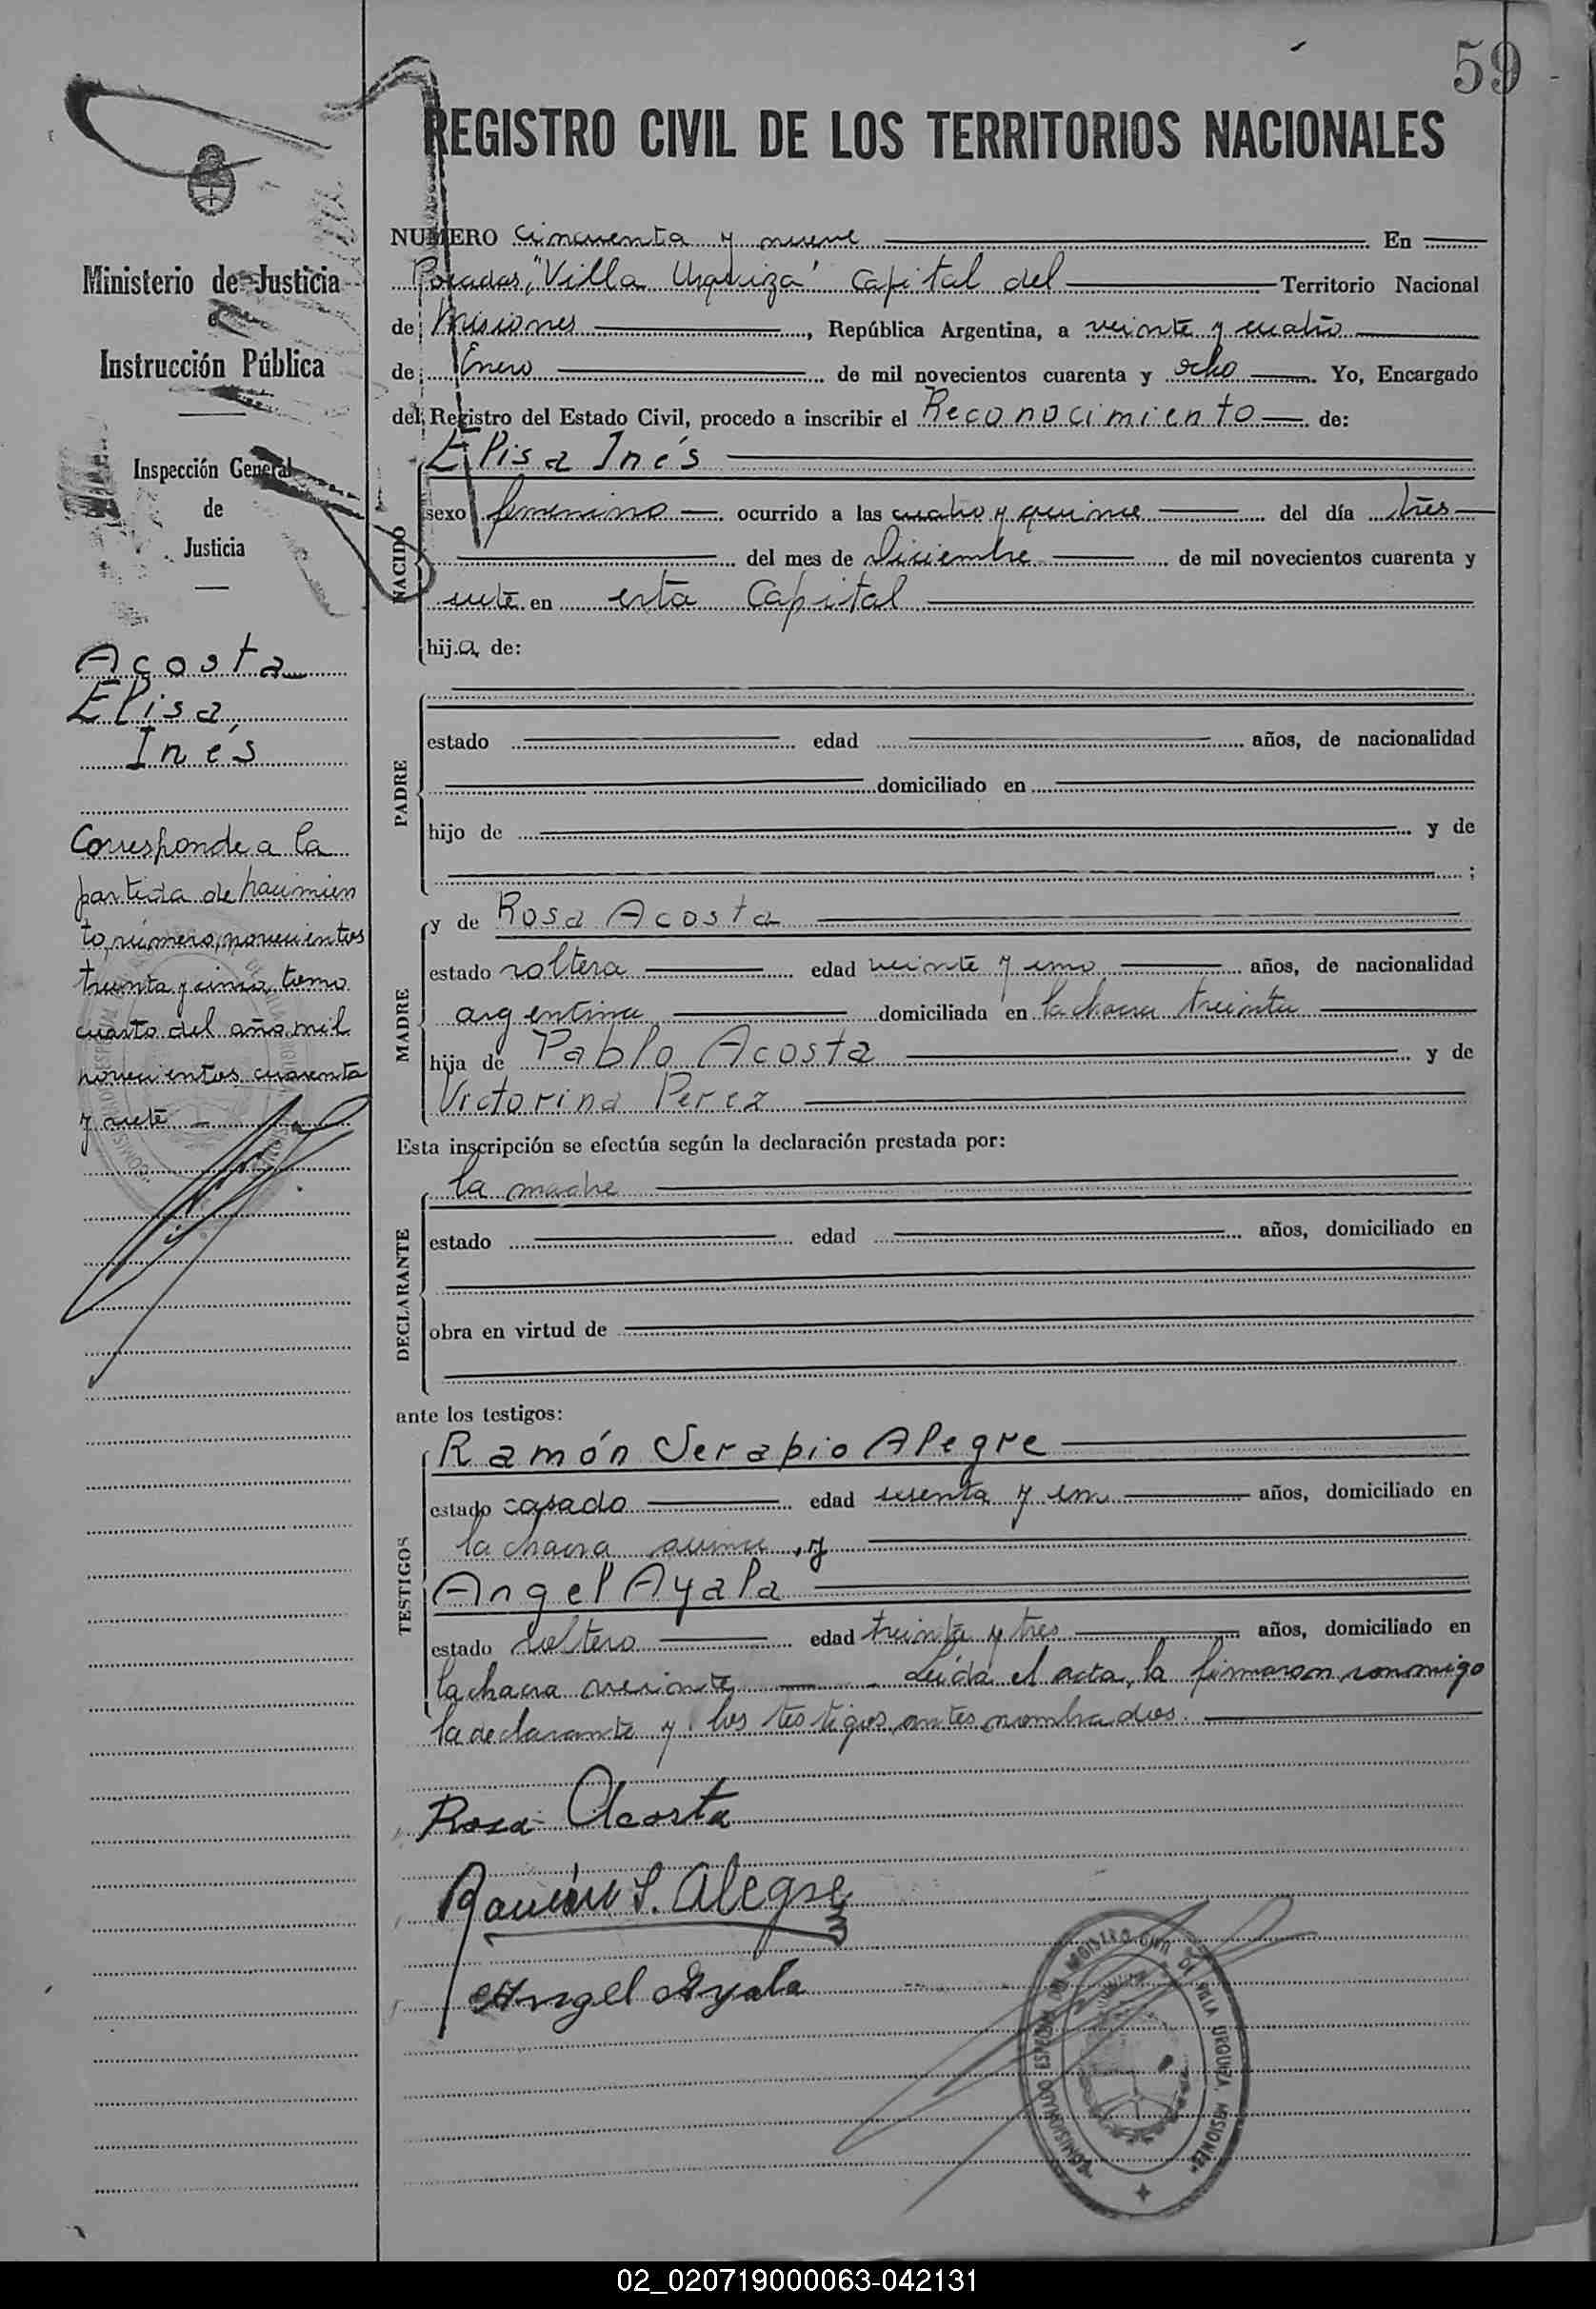 59
REGISTRO CIVIL DE LOS TERRITORIOS NACIONALES
NUMERO cincuenta y nueve En
Posadas, "Villa Urquiza" Capital del Territorio Nacional
de Misiones, República Argentina, a veinte y cuatro
de Enero de mil novecientos cuarenta y ocho. Yo, Encargado
del Registro del Estado Civil, procedo a inscribir el Reconocimiento de:
NACIDO
Elisa Inés
sexo femenino ocurrido a las cuatro y quince del día tres
del mes de Diciembre de mil novecientos cuarenta y
siete en esta Capital
hij.a de:
PADRE
estado edad años, de nacionalidad
domiciliado en
hijo de y de
;
MADRE
y de Rosa Acosta
estado soltera edad veinte y uno años, de nacionalidad
argentina domiciliada en la chacra treinta
hija de Pablo Acosta y de
Victorina Perez
Esta inscripción se efectúa según la declaración prestada por:
DECLARANTE
la madre
estado edad años, domiciliado en
obra en virtud de
ante los testigos:
TESTIGOS
Ramón Serapio Alegre
estado casado edad y un años, domiciliado en
la chacra quince, y
Angel Ayala
estado soltero edad treinta y tres años, domiciliado en
la chacra veinte. Leída el acta, la firmaron conmigo
la declarante y los testigos antes nombrados.
Rosa Acosta
Ramón S. Alegre
Angel Ayala
COMISIONADO ESPECIAL DEL REGISTRO CIVIL DE VILLA URQUIZA, MISIONES
Ministerio de Justicia
e
Instrucción Pública
Inspección General
de
Justicia
Acosta
Elisa
Inés
Corresponde a la
partida de nacimien
to, número, novecientos
treinta y cinco, tomo
cuarto del año mil
novecientos cuarenta
y siete
02_020719000063-042131